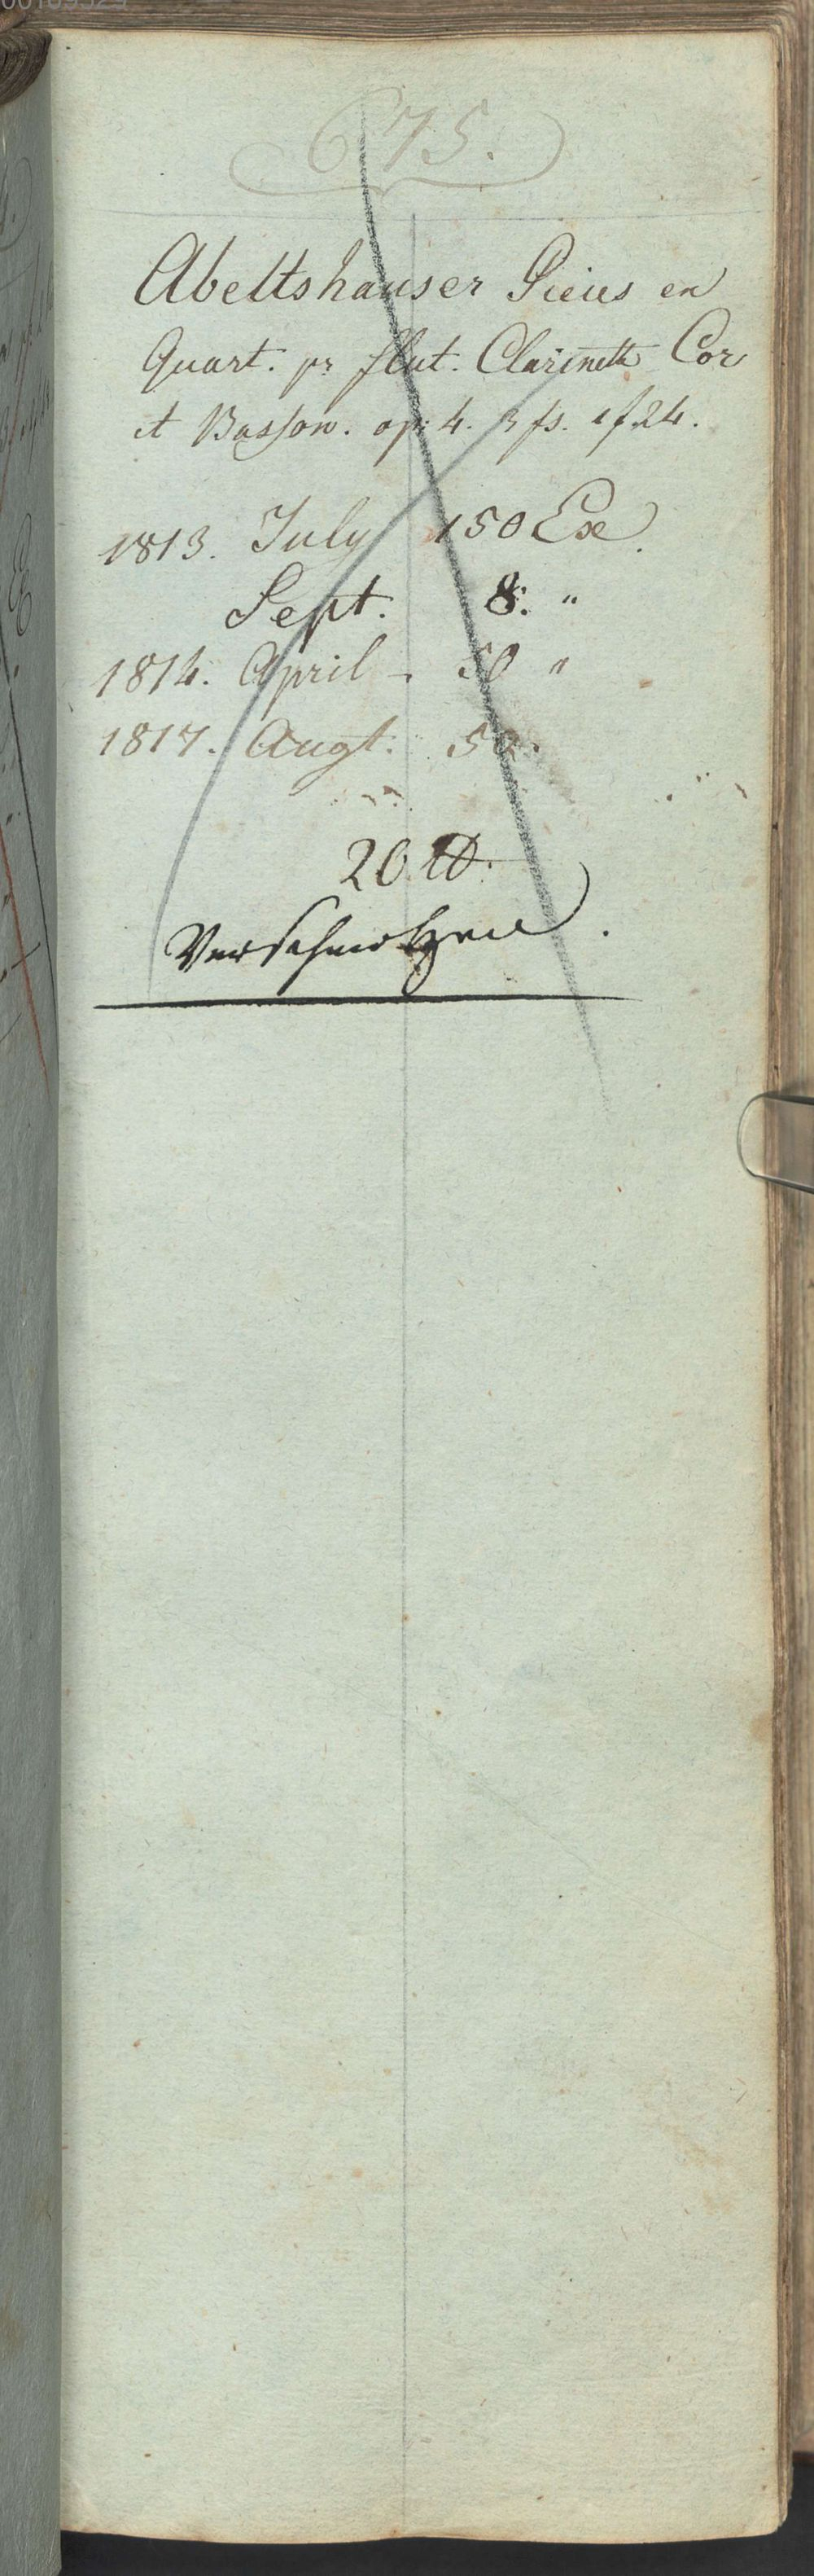 00189529
675.
Abeltshauser Pieces en
Quart. pr flut. Clarinett Cor
et Basson. op: 4. 3 fs. 1f24.
1813. July 150 Ex.
Sept. 8. "
1814. April - 50 "
1817. Augt. 50.
20 ℔.
Verschmolzen.